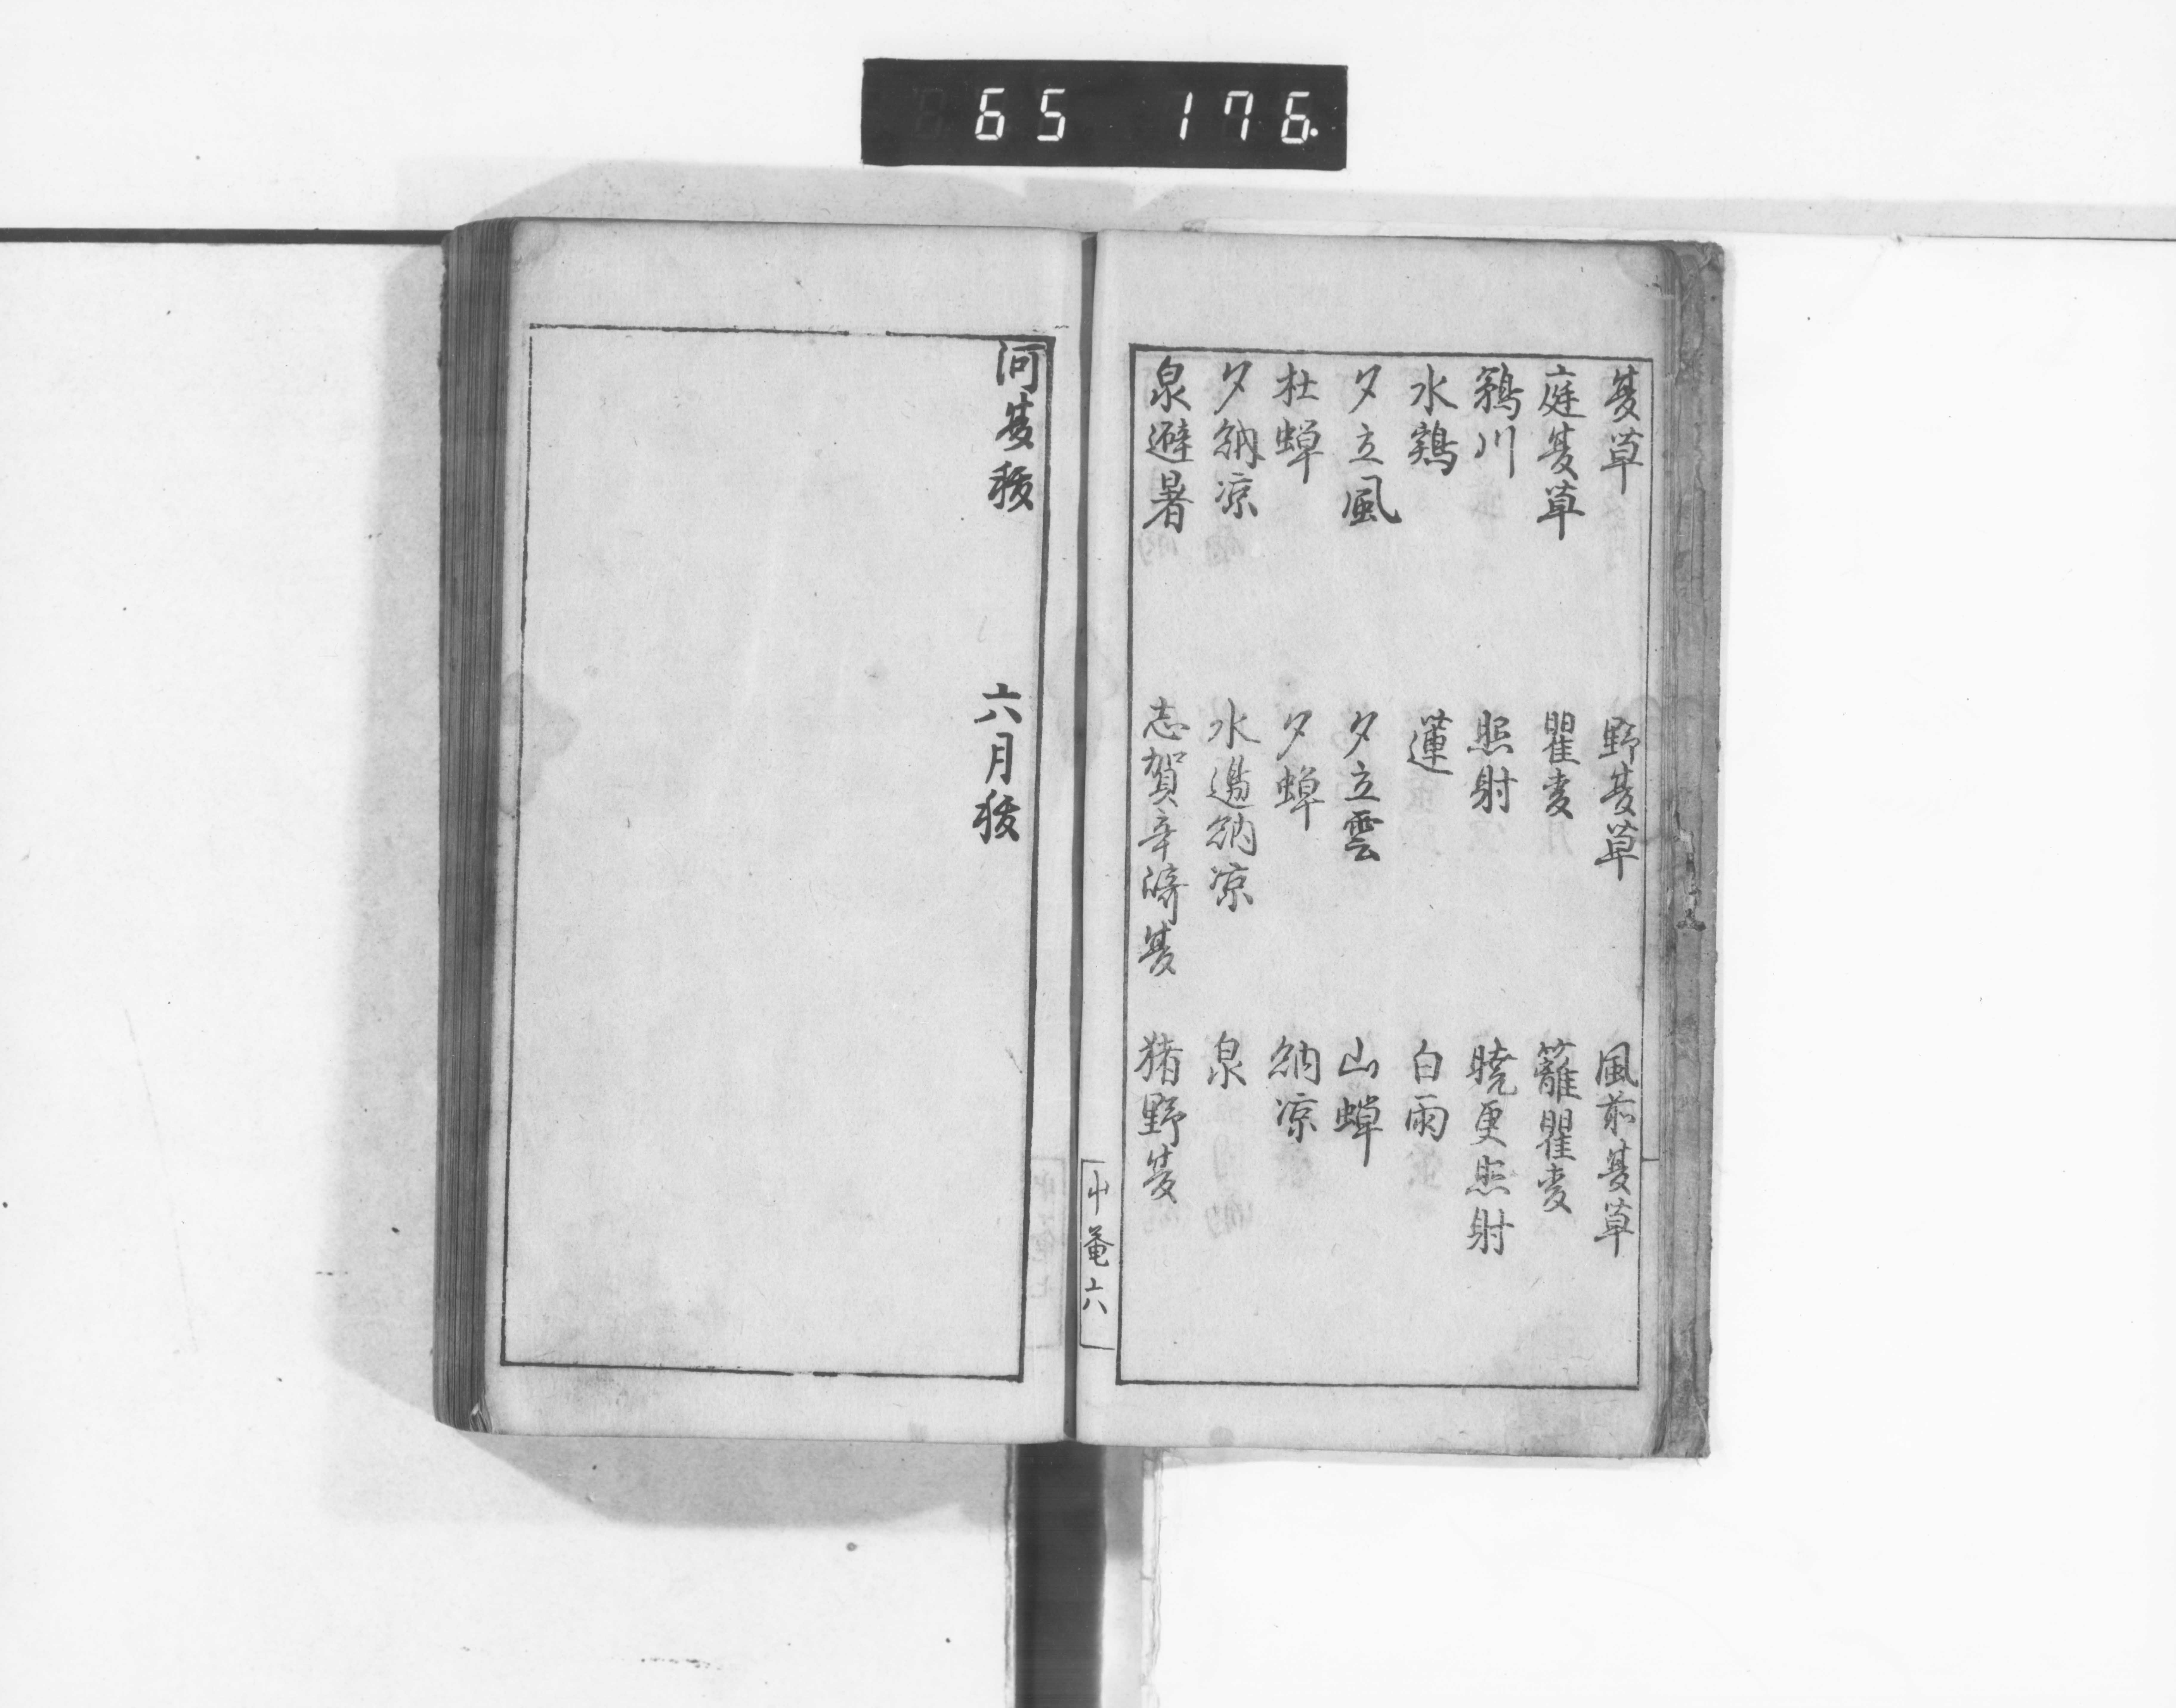 65 176
夏草 野夏草 風前夏草
庭夏草 瞿麦 籬瞿麦
鵜川 照射 暁更照射
水鶏 蓮 白雨
夕立風 夕立雲 山蝉
杜蝉 夕蝉 納凉
夕納凉 水邊納凉 泉
泉避暑 志賀辛崎夏 猪野夏
屮菴六
河夏祓 六月祓